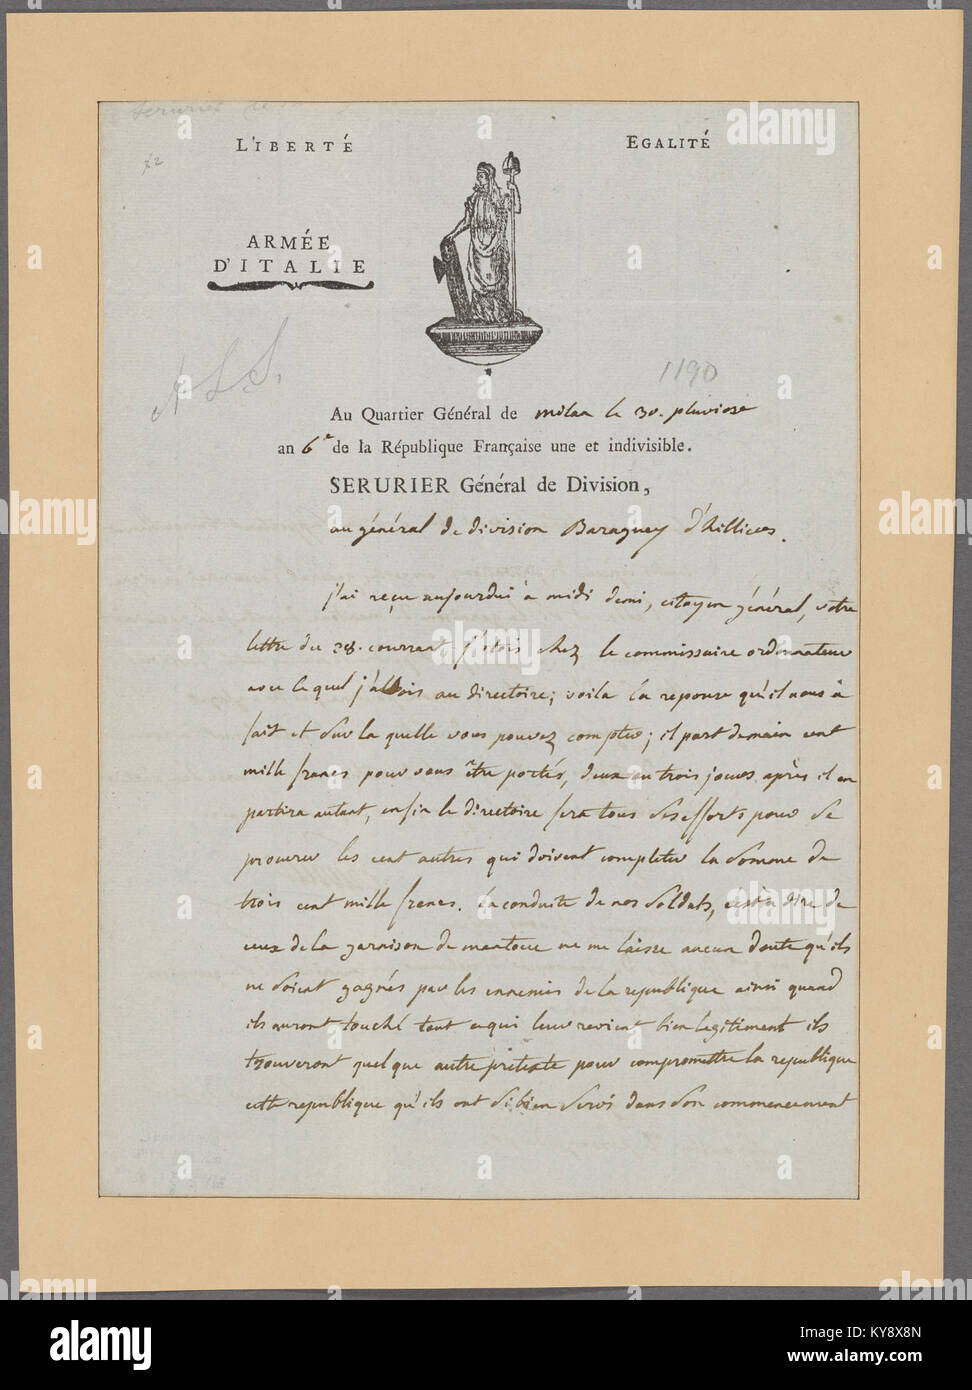 L'IBERTÉ
EGALITÉ
72
ARMÉE
D'ITALIE
A L S.
1190
Au Quartier Général de milan le 30. pluviose
an 6e de la République Française une et indivisible.
SERURIER Général de Division,
au général de division Baraguey d'hilliers.
j'ai reçu aujourdui à midi demi, citoyen général, votre
lettre du 28. courrant j'étois chez le commissaire ordonnateur
avec le quel j'allois au directoire; voila la reponse qu'il nous à
fait et sur la quelle vous pouvez compter; il part demain cent
mille francs pour vous être portés, deux ou trois jours après il en
partira autant, enfin le directoire fera tous ses efforts pour se
procurer les cent autres qui doivent completter la somme de
trois cent mille francs. la conduite de nos soldats, c'est à dire de
ceux de la garnison de mantoue ne me laisse aucun doute qu'ils
ne soient gagnés par les ennemis de la republique ainsi quand
ils auront touché tout ce qui leur revient bien legitiment ils
trouveront quel que autre pretexte pour compromettre la republique
cette republique qu'ils ont si bien servi dans son commencement
alamy
KY8X8N
www.alamy.com